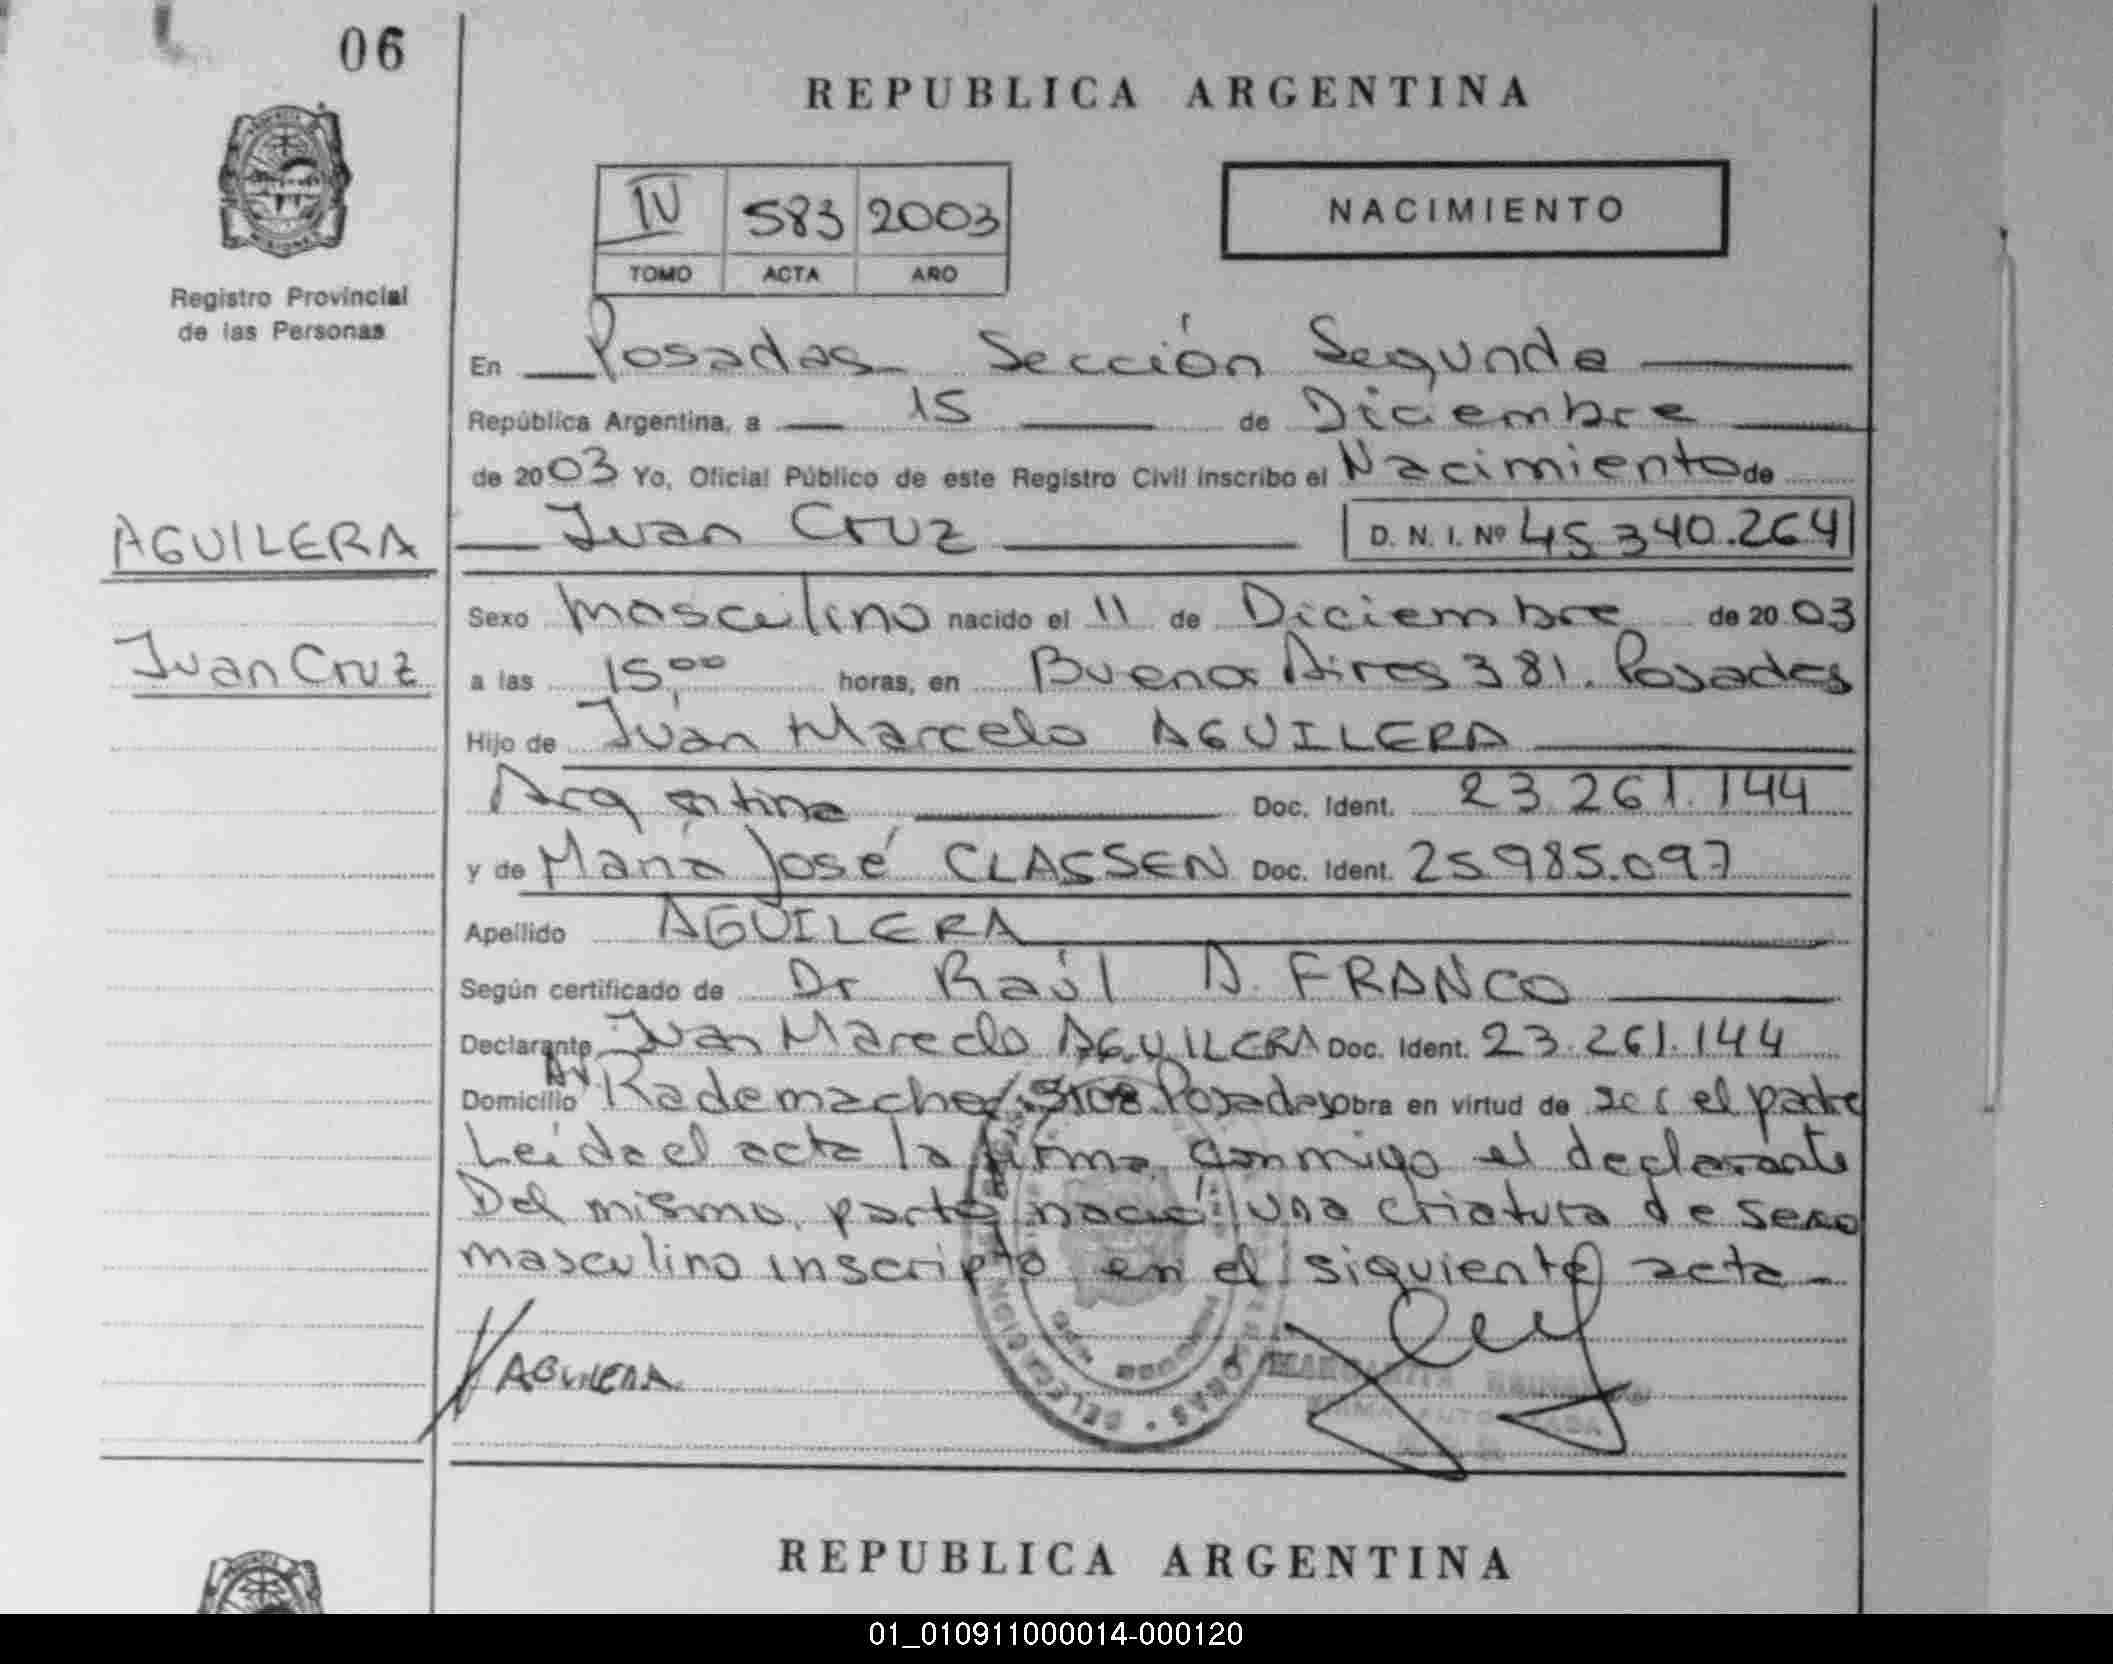 06
REPUBLICA ARGENTINA
IV 583 2003
TOMO ACTA AÑO
NACIMIENTO
Registro Provincial
de las Personas
En Posadas Sección Segunda
República Argentina, a 15 de Diciembre
de 2003 Yo, Oficial Público de este Registro Civil inscribo el Nacimiento de
AGUILERA
Juan Cruz D. N. I. Nº 45.340.264
Sexo masculino nacido el 11 de Diciembre de 2003
Juan Cruz
a las 15,00 horas, en Buenos Aires 381. Posadas
Hijo de Juan Marcelo AGUILERA
Argentina Doc. Ident. 23.261.144
y de María José CLASSEN Doc. Ident. 25.985.097
Apellido AGUILERA
Según certificado de Dr Raúl A. FRANCO
Declarante Juan Marcelo AGUILERA Doc. Ident. 23.261.144
Domicilio Av. Rademacher Posadas obra en virtud de ser el padre
Leída el acta la firma conmigo el declarante
Del mismo parto nació una criatura de sexo
masculino inscripto en el siguiente acta
AGUILERA
DELEGACION
REPUBLICA ARGENTINA
01_010911000014-000120